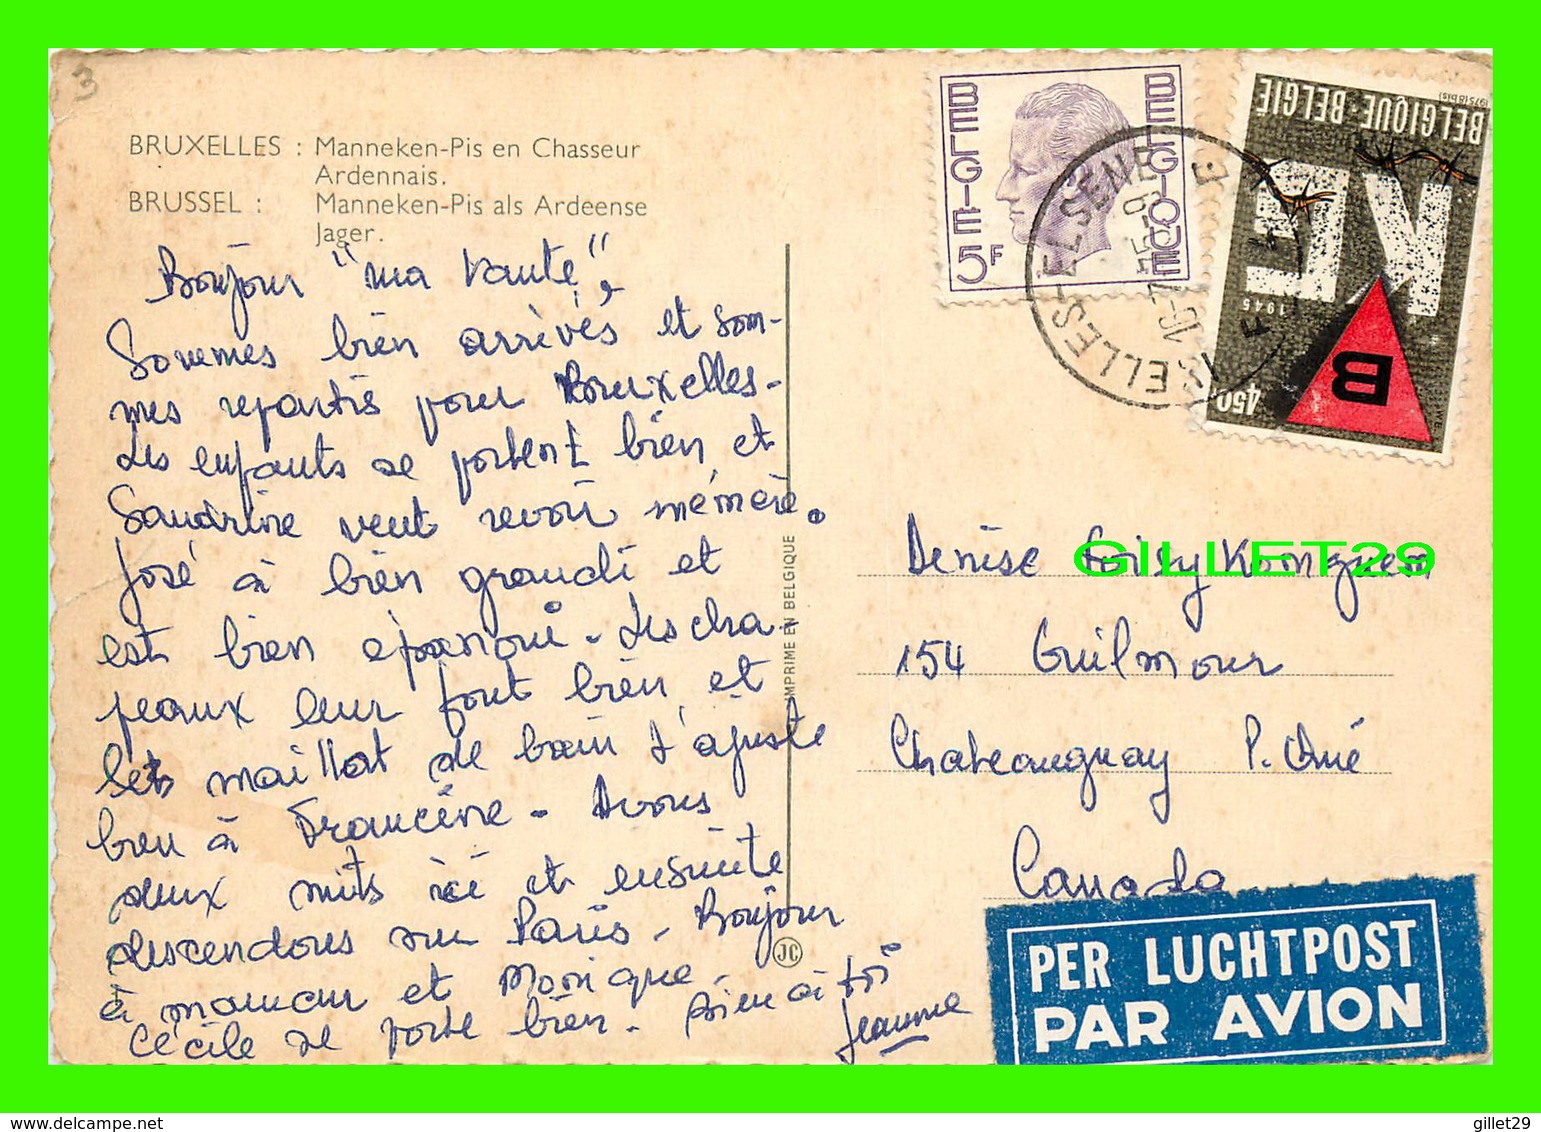 3
BRUXELLES : Manneken-Pis en Chasseur
Ardennais.
BRUSSEL : Manneken-Pis als Ardeense
Jager.
Bonjour "ma tante",
Sommes bien arrivés et som-
mes repartis pour Bruxelles-
Les enfants se portent bien et
Sandrine veut revoir mémère.
José a bien grandi et
est bien épanoui - Les cha-
peaux leur font bien et
le maillot de bain s'ajuste
bien à Francine - Avons
deux nuits ici et ensuite
descendons sur Paris - Bonjour
à maman et Monique.
Cécile se porte bien. Bien à toi
Jeanne
IMPRIME EN BELGIQUE
JC
BELGIE BELGIQUE
5F
ELSENE
16-7 75-9
E
F
BELGIQUE-BELGIE
1975 (8bis)
KG
1945
B
450
GILLET29
Denise
154 Guilmour
Chateauguay P. Qué
Canada
PER LUCHTPOST
PAR AVION
www.delcampe.net
gillet29